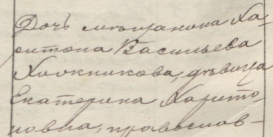 Дочь мѣщанина Ха-
ритона Васильева
девица
Екатерина Харито-
новна, православ-